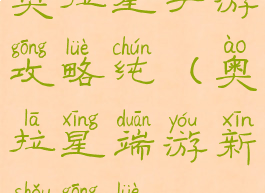 奥拉星手游
gōng lüè chún ào
攻略纯(奥
lā xīng duān yóu xīn
拉星端游新
shǒu gōng lüè